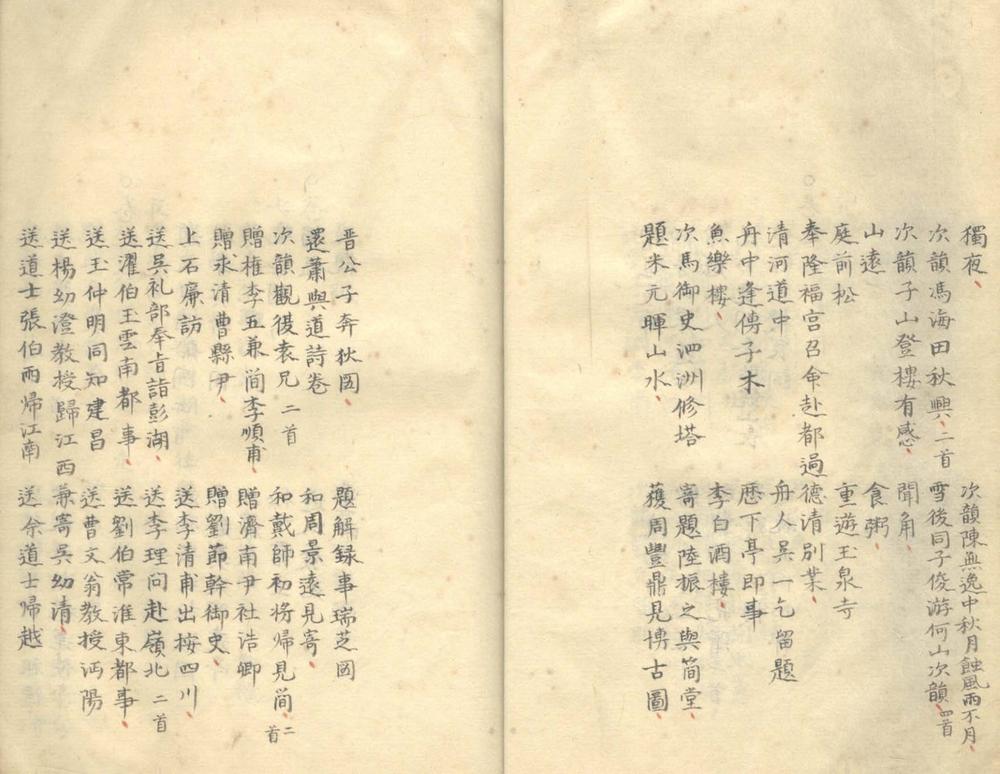 獨夜 次韻陳無逸中秋月蝕風雨不月
次韻馮海田秋興二首 雪後同子俊游何山次韻四首
次韻子山登樓有感 聞角
山遠 食粥
庭前松 重遊玉泉寺
奉隆福宮召命赴都過德清別業
清河道中 舟人吳一乞留題
舟中逢傅子木 歷下亭即事
魚樂樓 李白酒樓
次馬御史泗洲修塔 寄題陸振之與簡堂
題米元暉山水 獲周豐鼎見博古圖
晋公子奔狄圖 題解録事瑞芝圖
還蕭與道詩卷 和周景遠見寄
次韻觀復袁兄二首 和戴師初將帰見簡二首
贈權李五兼簡李順甫 贈濟南尹社浩卿
贈求清曹縣尹 贈劉節幹御史
上石廉訪 送李清甫出按四川
送吳礼部奉旨詣彭湖 送李理問赴嶺北二首
送濯伯玉雲南都事 送劉伯常淮東都事
送王仲明同知建昌 送曹文翁教授沔陽
送楊幼澄教授歸江西兼寄吳幼清
送道士張伯雨帰江南 送余道士帰越